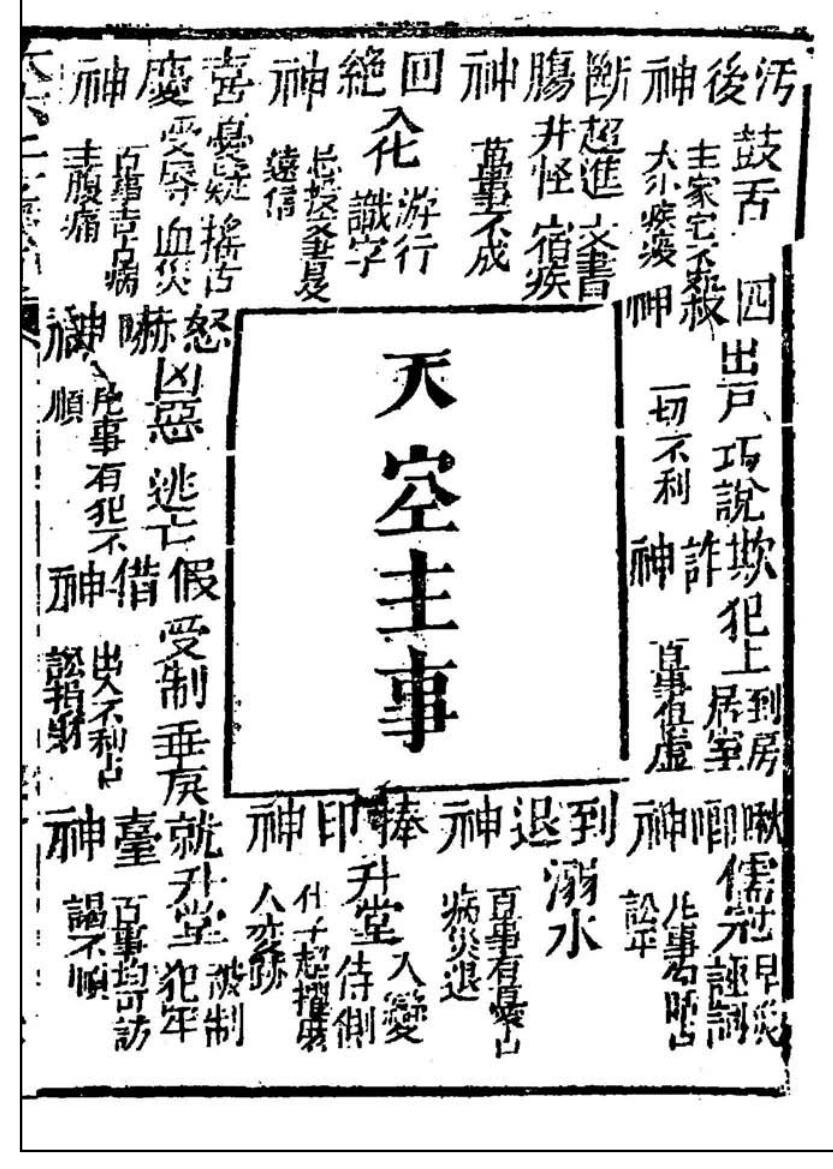 汚後神
鼓舌
主家宅不
大小疾疫
斷腸神
超進 文書
井怪 宿疾
萬事不成
回絕神
入化 游行
識字
遠信
喜慶神
憂疑
受辱 血災
百事吉占病
主腹痛
四殺神
出戶 巧說
一切不利
怒嚇神
凶惡 逃亡
凡事有犯不
順
天空主事
欺詐神
犯上 到房
居室
百事但虛
假借神
受制 垂戾
出入不利占
訟招財
啾唧神
儒冠 旱災
誣詞
凡事
訟平
到退神
溺水
百事有
病災退
捧印神
升堂 入變
侍側
仕子超擢庶
人
就臺神
升堂 被制
犯年
百事均可訪
謁不順